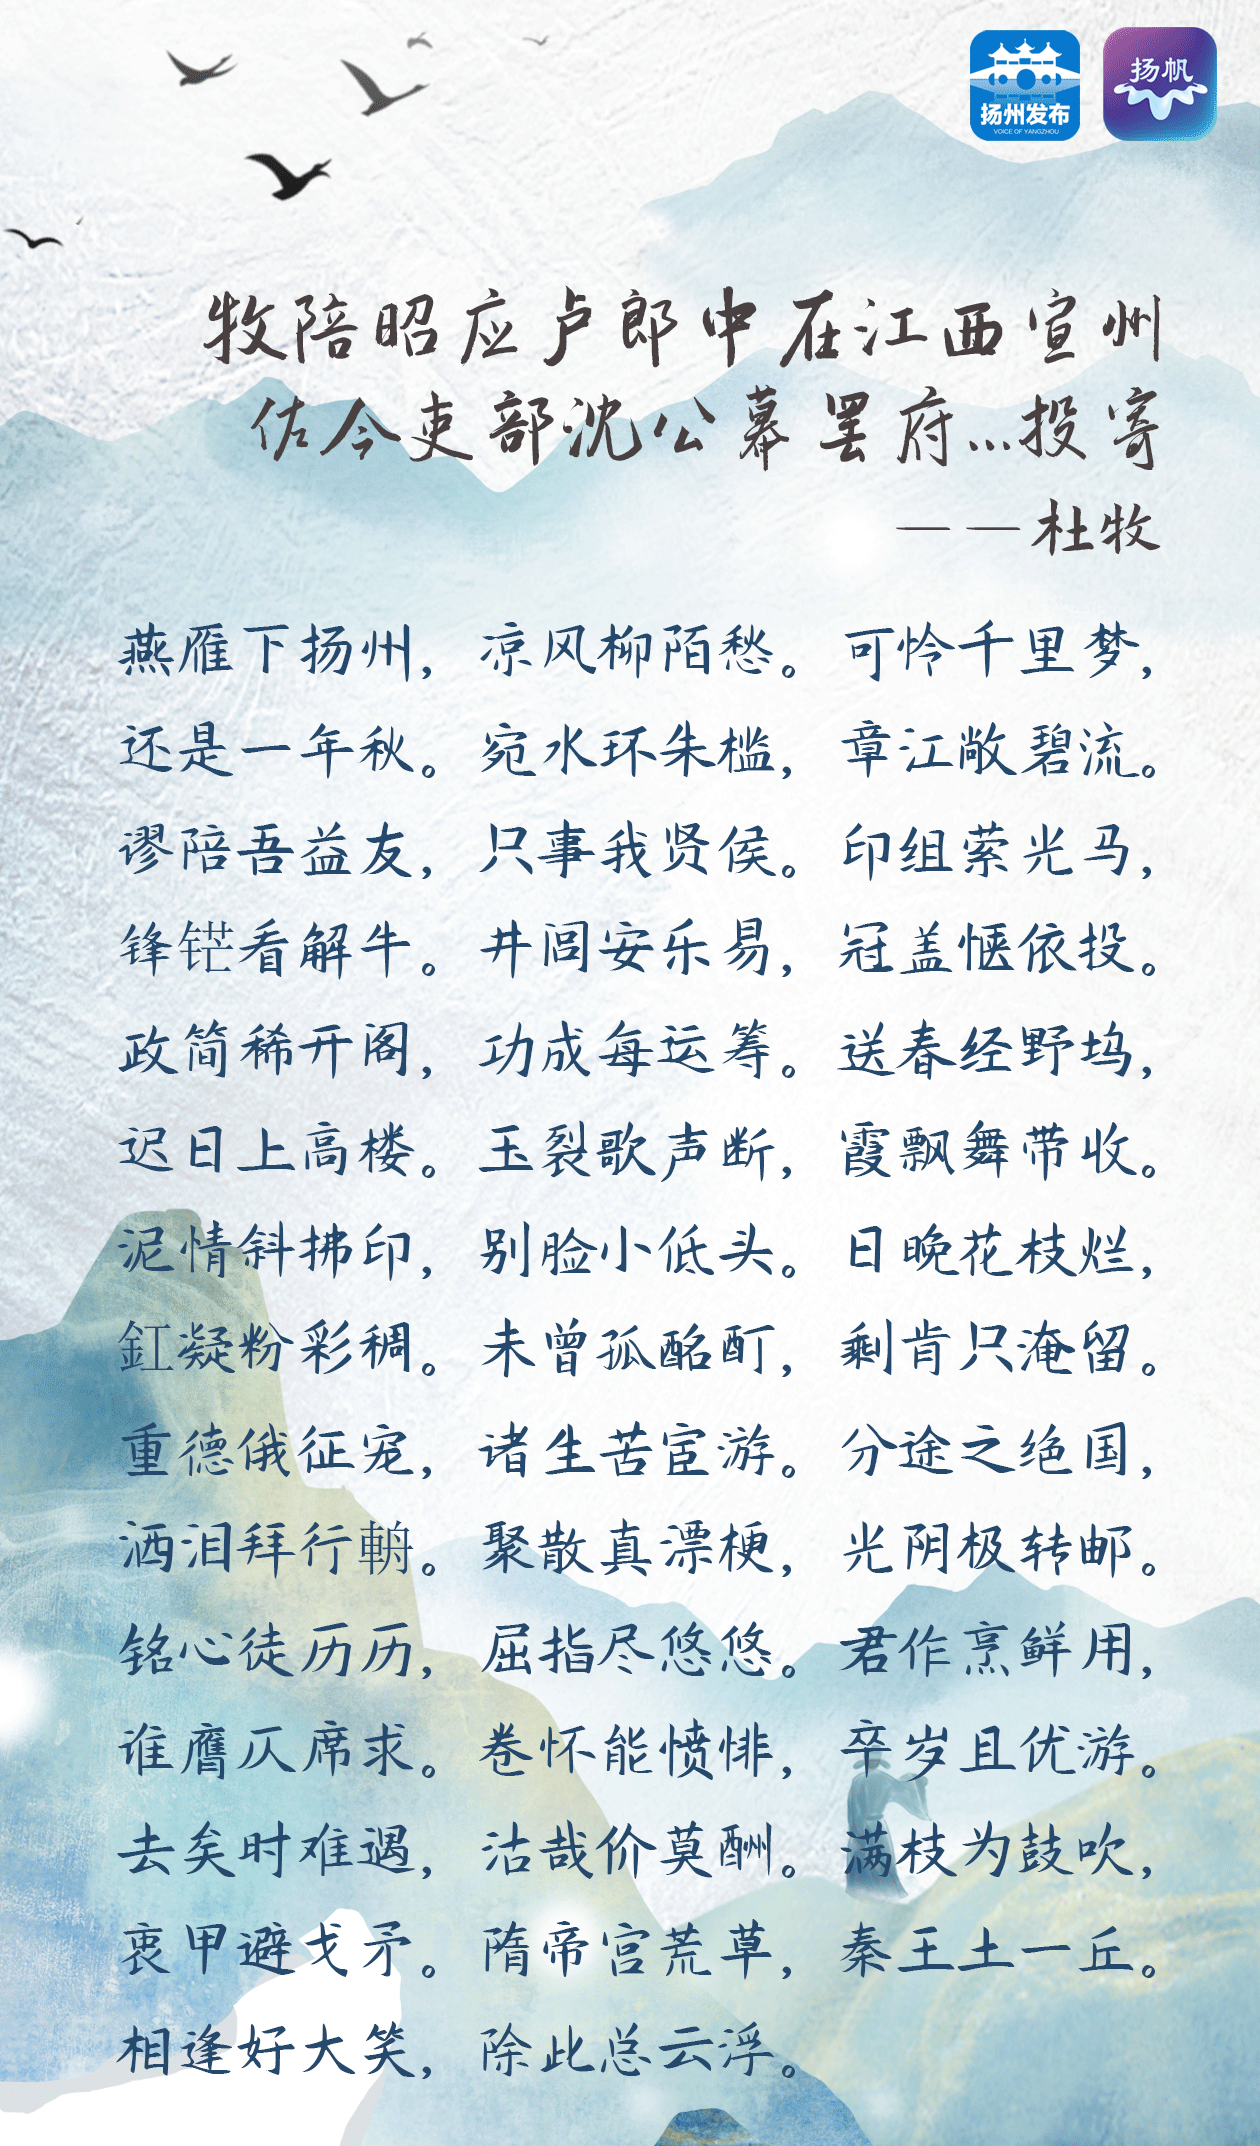 扬州发布
VOICE OF YANGZHOU
扬帆
牧陪昭应卢郎中在江西宣州
佐今吏部沈公幕罢府…投寄
——杜牧
燕雁下扬州，凉风柳陌愁。可怜千里梦，
还是一年秋。宛水环朱槛，章江敞碧流。
谬陪吾益友，只事我贤侯。印组萦光马，
锋铓看解牛。井闾安乐易，冠盖惬依投。
政简稀开阁，功成每运筹。送春经野坞，
迟日上高楼。玉裂歌声断，霞飘舞带收。
泥情斜拂印，别脸小低头。日晚花枝烂，
釭凝粉彩稠。未曾孤酩酊，剩肯只淹留。
重德俄征宠，诸生苦宦游。分途之绝国，
洒泪拜行輈。聚散真漂梗，光阴极转邮。
铭心徒历历，屈指尽悠悠。君作烹鲜用，
谁膺仄席求。卷怀能愤悱，卒岁且优游。
去矣时难遇，沽哉价莫酬。满枝为鼓吹，
衷甲避戈矛。隋帝宫荒草，秦王土一丘。
相逢好大笑，除此总云浮。